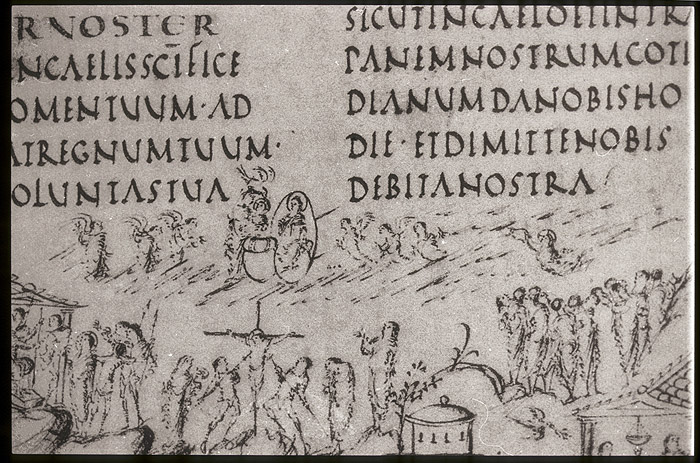 R NOSTER
NCAELISSCĪFICE
OMENTUUM·AD
ATREGNUMTUUM·
OLUNTASTUA
SICUTINCAELOETINTR
PANEMNOSTRUMCOTI
DIANUMDANOBISHO
DIE·ETDIMITTENOBIS
DEBITANOSTRA